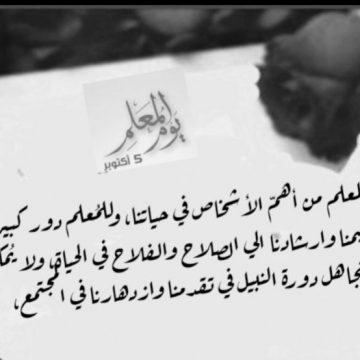 يوم المعلم
5 أكتوبر
من أهمّ الأشخاص في حياتنا، وللمُعلم دور
وارشادنا الي الصلاح والفلاح في الحياة، ولا
دورة النبيل في تقدمنا وازدهارنا في المجتمع،